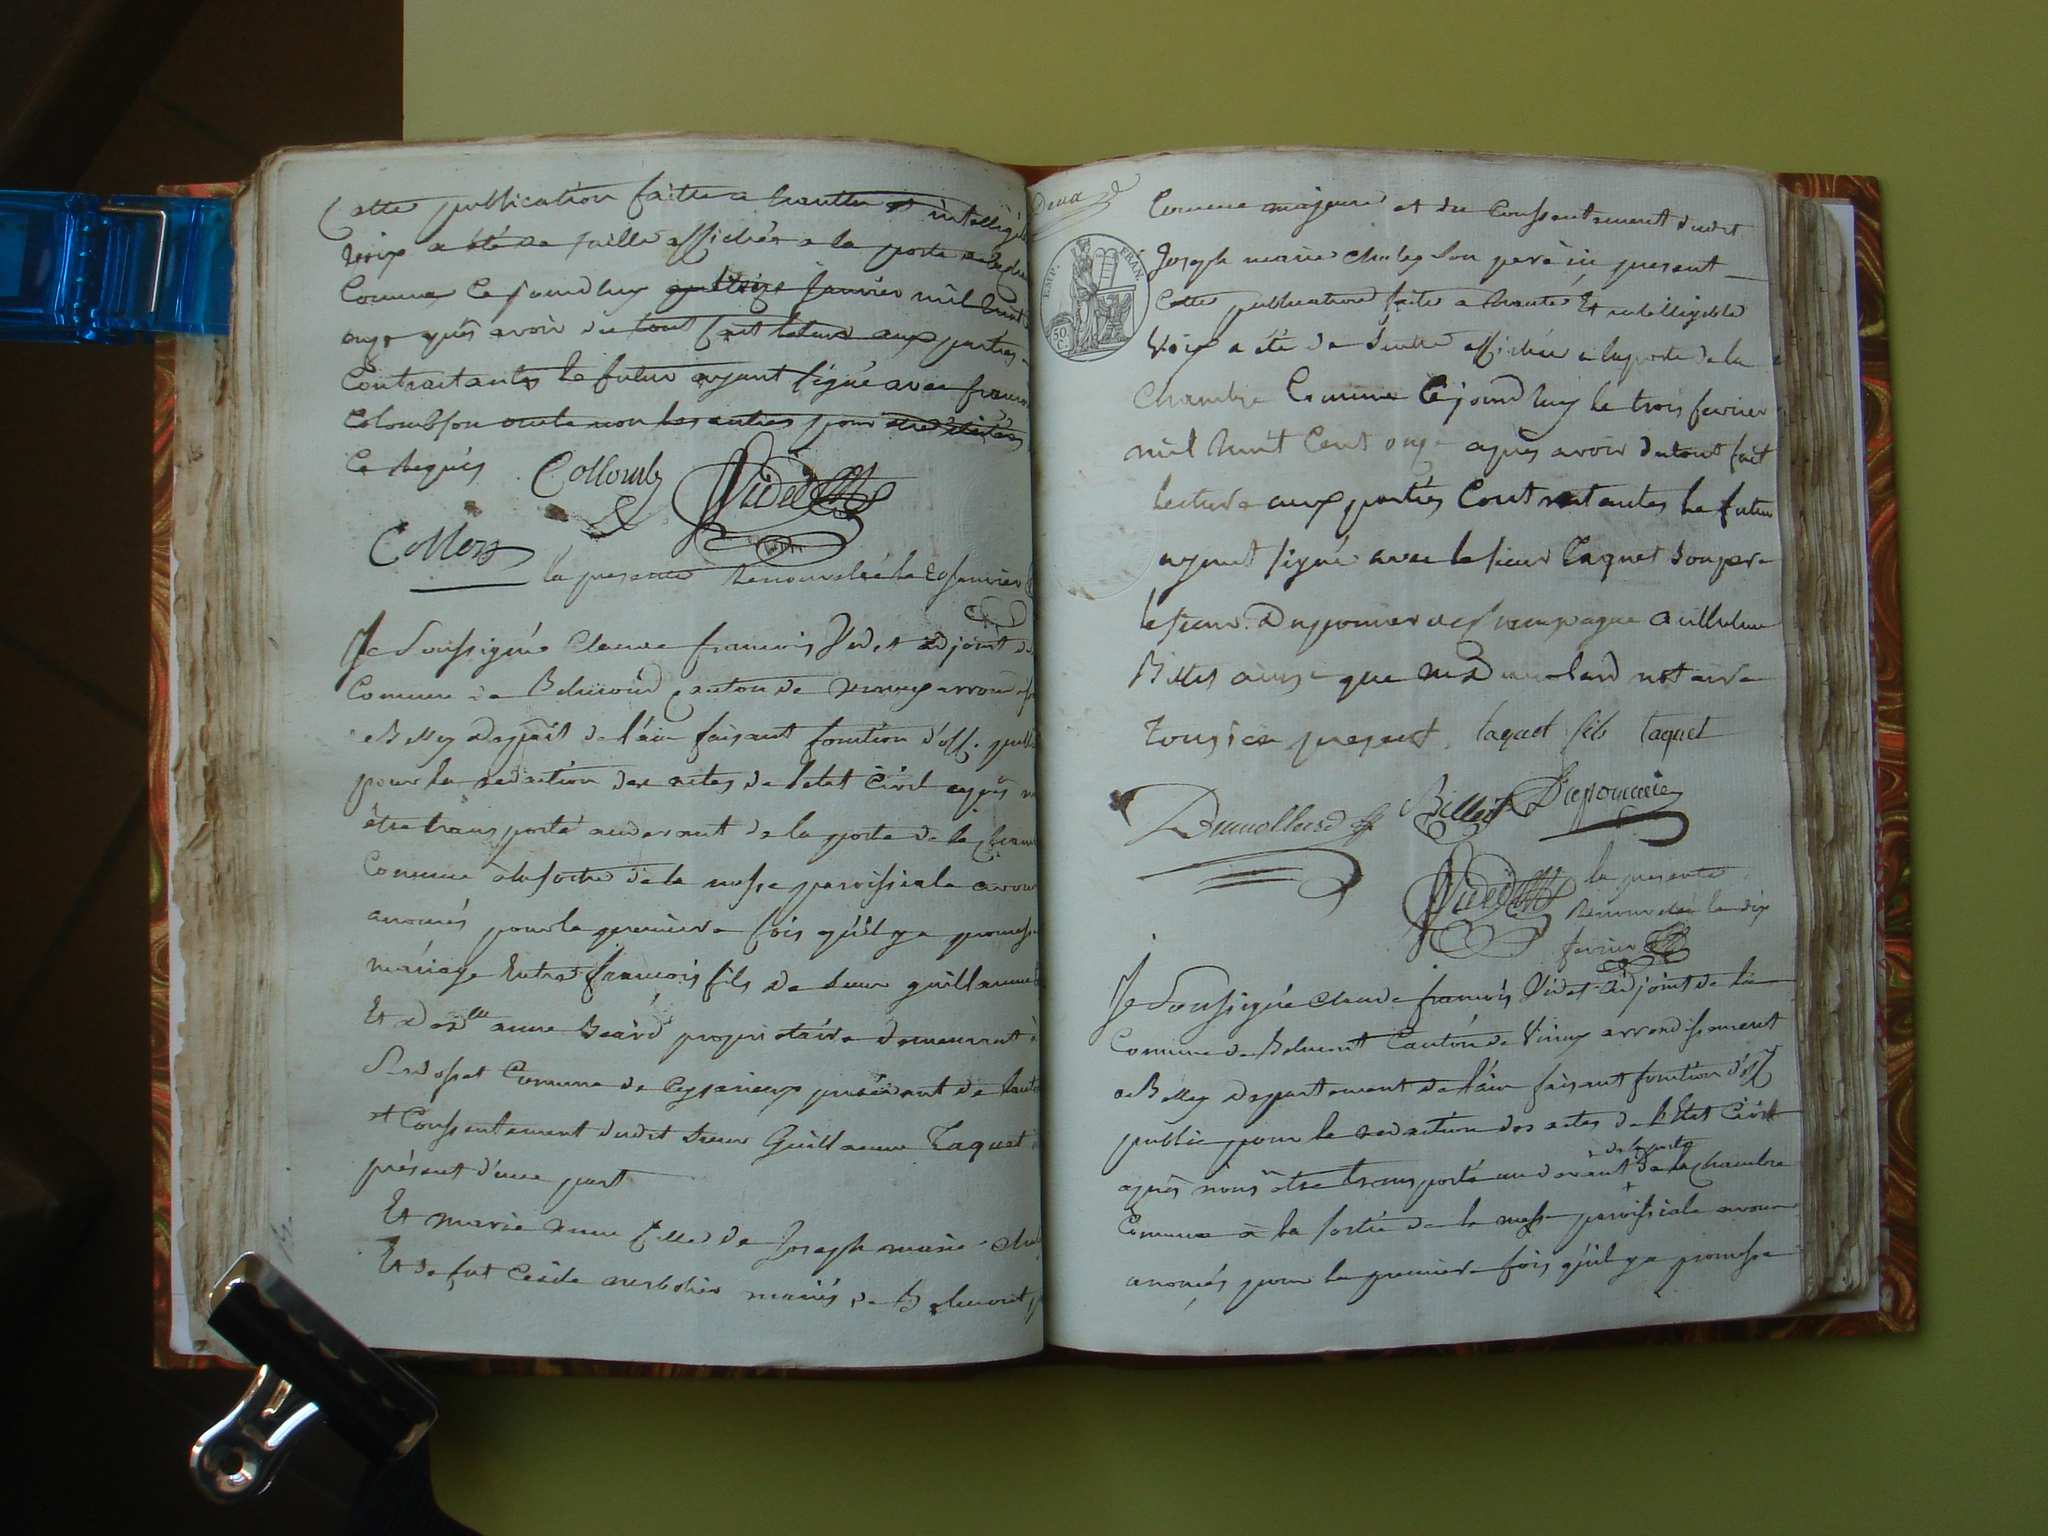 Cette publication faitte a hautte et intelligible
voix a été de suitte affichée a la porte
Comune Ce jourd'huy treize janvier mil huit
onze après avoir du tout fait lecture aux parties
Contractantes le futur ayant signé avec francois
Colomb son oncle non les autres pour
Ce requis Collomb Videt
Collomb
la presente Renouvelée le 20 janvier
Je Soussigné Claude francois Videt adjoint de
Comune de Belmond Canton de virieux arrondis
a Belley Departt de l'ain faisant fonction d'off. publ
pour la redaction des actes de l'etat Civil après n
être transporté audevant de la porte de la Cham
Comune à la sortie de la messe paroissiale avon
anoncés pour la premiere fois qu'il y a promesse
mariage Entre francois fils de sieur guillaume
Et de dlle anne Béard propriétaire demeurant à
Comune de Ceyzerieux procédant de l'auto
et Consentement dudit sieur Guillaume Taquet
présent d'une part
Et marie anne fille de Joseph marie
Et defunt Cécile mariés de Belmont
Deux
EMP. FRAN.
50 C.
Comme majeure et du Consentement dudit
Joseph marie son père ici present
Cette publication faite a haute Et intelligible
Voix a été de Suitte affichée a la porte de la
Chambre Comune Cejourd'huy le trois fevrier
mil huit Cent onze après avoir du tout fait
lecture aux parties Contractantes le futur
ayant signé avec le sieur Taquet son pere
le sieur Dupommier Guillaume
Billet ainsi que Me Dumolard notaire
tous ici present taquet fils taquet
Dumollard Billet Dupommier
Videt la presente
Renouvelée le dix
fevrier
Je Soussigné Claude francois Videt Adjoint de la
Comune de Belmont Canton de Virieux arrondissement
de Belley departement de l'ain faisant fonction d'off
public pour la redaction des actes de l'Etat Civil
de la porte
après nous être transporté audevant de la Chambre
Comune à la sortie de la messe paroissiale avons
anoncés pour la premiere fois qu'il y a promesse